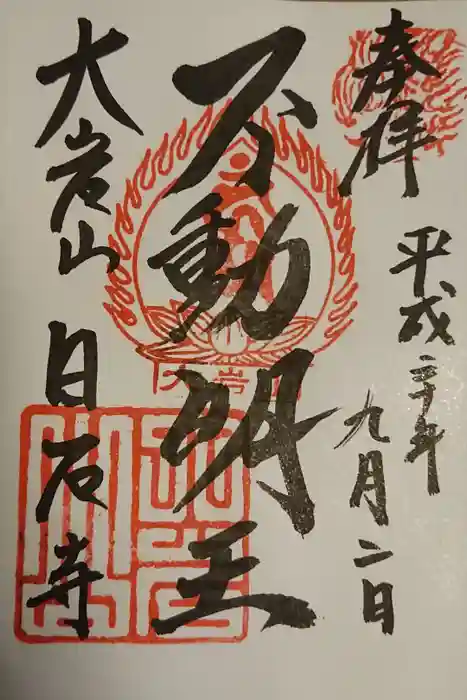 奉拝
平成二十年
九月二日
不動明王
大岩山
日石寺